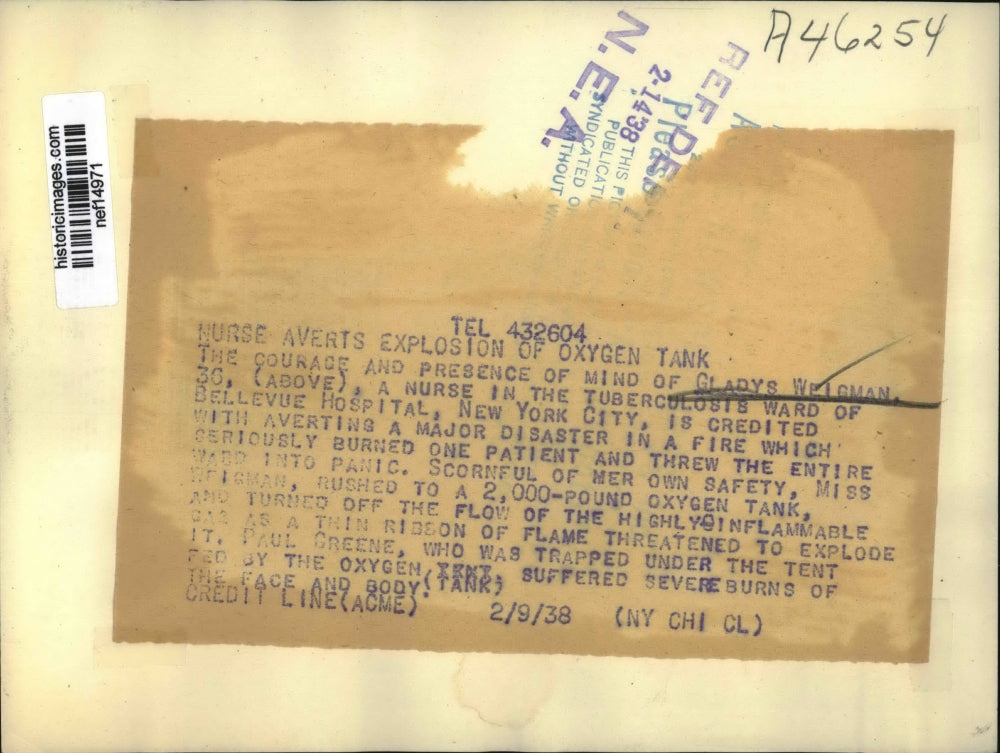 A46254
historicimages.com
nef14971
N.E.A.
REF DEPT
2-14-38
THIS PIC
PUBLICATI
SYNDICATED O
WITHOUT W
TEL 432604
NURSE AVERTS EXPLOSION OF OXYGEN TANK
THE COURAGE AND PRESENCE OF MIND OF GLADYS WEIGMAN,
(ABOVE), A NURSE IN THE TUBERCULOSIS WARD OF
BELLEVUE HOSPITAL, NEW YORK CITY, IS CREDITED
WITH AVERTING A MAJOR DISASTER IN A FIRE WHICH
SERIOUSLY BURNED ONE PATIENT AND THREW THE ENTIRE
WARD INTO PANIC. SCORNFUL OF HER OWN SAFETY, MISS
WEIGMAN, RUSHED TO A 2,000-POUND OXYGEN TANK,
AND TURNED OFF THE FLOW OF THE HIGHLY INFLAMMABLE
GAS AS A THIN RIBBON OF FLAME THREATENED TO EXPLODE
IT. PAUL GREENE, WHO WAS TRAPPED UNDER THE TENT
FED BY THE OXYGEN TENT, (TANK) SUFFERED SEVERE BURNS OF
THE FACE AND BODY.
CREDIT LINE(ACME) 2/9/38 (NY CHI CL)